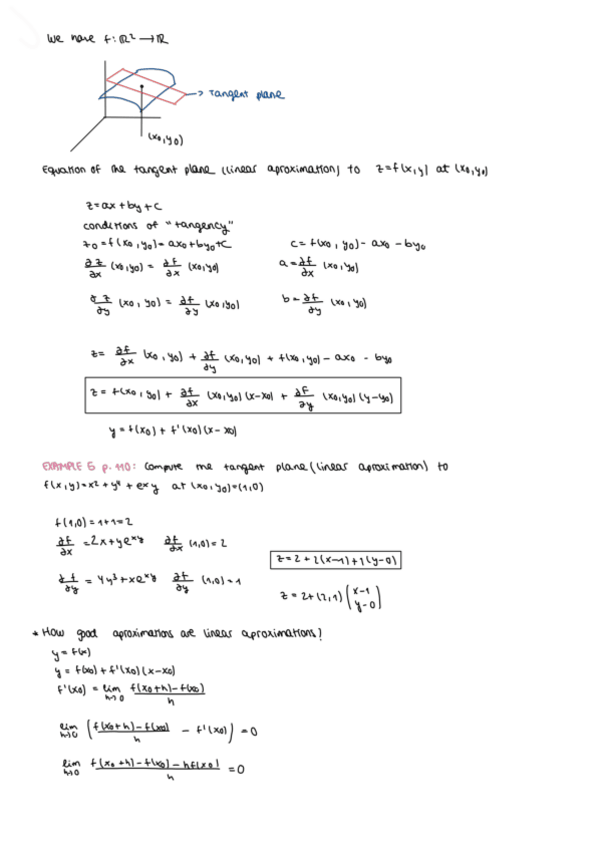 We have f: ℝ² → ℝ
→ Tangent plane
(x₀,y₀)
Equation of the tangent plane (linear aproximation) to z=f(x,y) at (x₀,y₀)
z=ax+by+c
conditions of "tangency"
z₀=f(x₀,y₀)=ax₀+by₀+c c=f(x₀,y₀)-ax₀-by₀
∂z/∂x (x₀,y₀) = ∂f/∂x (x₀,y₀) a=∂f/∂x (x₀,y₀)
∂z/∂y (x₀,y₀) = ∂f/∂y (x₀,y₀) b=∂f/∂y (x₀,y₀)
z= ∂f/∂x (x₀,y₀) + ∂f/∂y (x₀,y₀) + f(x₀,y₀) - ax₀ - by₀
z = f(x₀,y₀) + ∂f/∂x (x₀,y₀)(x-x₀) + ∂F/∂y (x₀,y₀)(y-y₀)
y = f(x₀) + f'(x₀)(x-x₀)
EXAMPLE 5 p. 110: Compute the tangent plane (linear aproximation) to
f(x,y)=x²+y⁴+eˣʸ at (x₀,y₀)=(1,0)
f(1,0)=1+1=2
∂f/∂x =2x+yeˣʸ ∂f/∂x (1,0)=2 z=2+2(x-1)+1(y-0)
∂f/∂y = 4y³+xeˣʸ ∂f/∂y (1,0)=1 z=2+(2,1)(x-1 y-0)
* How good aproximations are linear aproximations?
y=f(x)
y = f(x₀)+f'(x₀)(x-x₀)
f'(x₀) = lim h→0 f(x₀+h)-f(x₀)/h
lim h→0 (f(x₀+h)-f(x₀)/h - f'(x₀)) =0
lim h→0 f(x₀+h)-f(x₀)-hf(x₀)/h =0